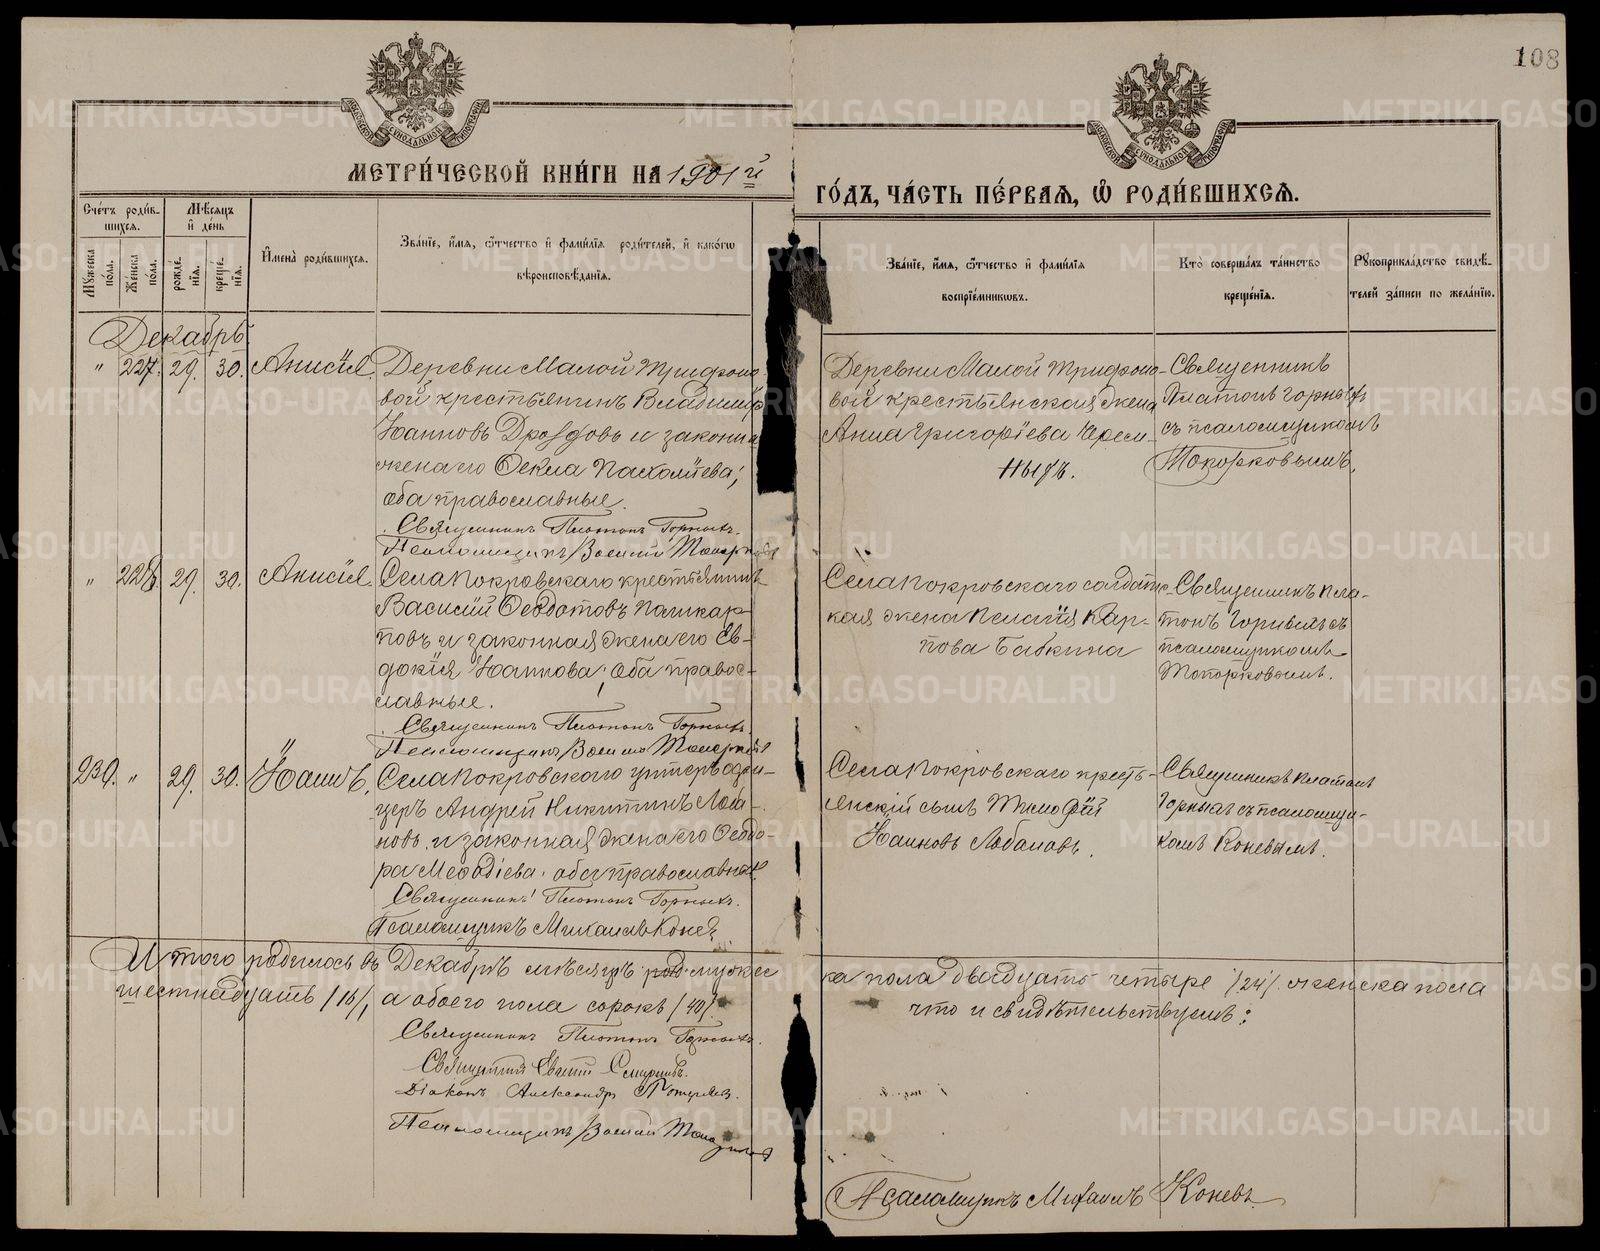 108
МОСКОВСКОЙ СУНОДАЛЬНОЙ ТИПОГРАФІИ
МОСКОВСКОЙ СУНОДАЛЬНОЙ ТИПОГРАФІИ
МЕТРИ́ЧЕСКОЙ КНИ́ГИ НА 1901 й
ГО́ДЪ, ЧА́СТЬ ПЕ́РВАЯ, Ѽ РОДИ́ВШИХСЯ.
Счéтъ роди́вшихся.
Мѣсяцъ и де́нь
Мꙋжеска пола.
Же́нска по́ла.
рожде́нїя.
креще́нїя.
И҆мена̀ роди́вшихся.
Зва́нїе, и҆́мя, ѻ҆́тчество и҆ фами́лїя роди́телей, и҆ како́гѡ
вѣроисповѣ́данїя.
Зва́нїе, и҆́мя, ѻ҆́тчество и҆ фами́лїя
воспрїе́мникѡвъ.
Кто̀ соверша́лъ та́инство
креще́нїя.
Рꙋкоприкла́дство свидѣ́-
телей за́писи по жела́нїю.
Декабрь.
" 227. 29. 30. Анисія.
Деревни Малой Трифоно
вой крестьянинъ Владиміръ
Іоанновъ Дроздовъ и законна
жена его Ѳекла Пахоміева;
оба православные.
Священникъ Платонъ Горныхъ.
Псаломщикъ Василій Топорковъ
Деревни Малой Трифоно-
вой крестьянская жена
Анна Григоріева Черем-
ныхъ.
Священникъ
Платонъ Горныхъ
съ псаломщикомъ
Топорковымъ.
" 228. 29. 30. Анисія.
Села Покровскаго крестьянинъ
Василій Ѳедотовъ Поликар
повъ и законная жена его Ев-
докія Іоаннова; оба правос-
лавные.
Священникъ Платонъ Горныхъ.
Псаломщикъ Василій Топорковъ
Села Покровскаго солдатс-
кая жена Пелагія Кар-
пова Бабкина
Священникъ Пла-
тонъ Горныхъ съ
псаломщикомъ
Топорковымъ.
239. " 29. 30. Іоаннъ.
Села Покровскаго унтеръ офи-
церъ Андрей Никитинъ Лоба-
новъ и законная жена его Ѳеодо-
ра Меѳодіева. оба православные.
Священникъ Платонъ Горныхъ.
Псаломщикъ Михаилъ Коневъ
Села Покровскаго кресть-
янскій сынъ Тимоѳей
Іоанновъ Лобановъ.
Священникъ Платонъ
Горныхъ съ псаломщи-
комъ Коневымъ.
Итого родилось въ Декабрѣ мѣсяцѣ мужес
ка пола двадцать четыре /24/. женска пола
шестнадцать /16/, а обоего пола сорокъ /40/.
что и свидѣтельствуемъ:
Священникъ Платонъ Горныхъ.
Священникъ Смирновъ.
Діаконъ Александръ
Псаломщикъ Василій Топорковъ
Псаломщикъ Михаилъ Коневъ
METRIKI.GASO-URAL.RU